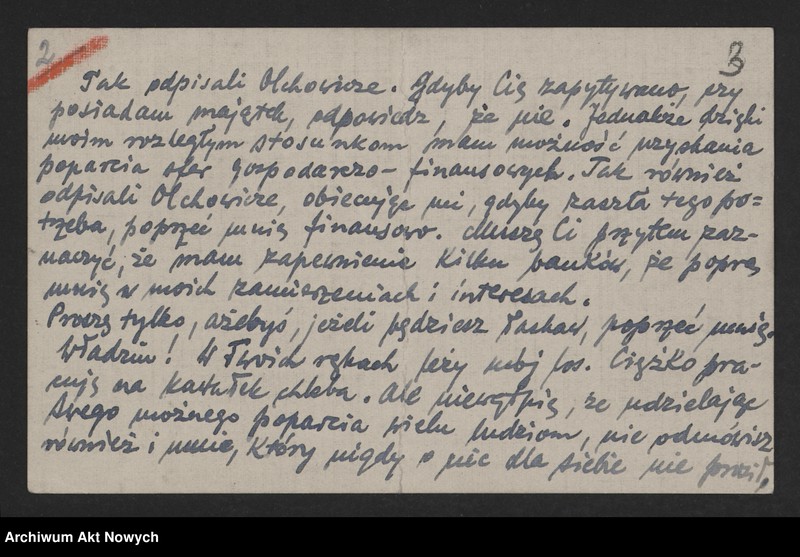 2 3
Tak odpisali Olchowicze. Gdyby Cię zapytywano, czy
posiadam majątek, odpowiedz, że nie. Jednakże dzięki
moim rozległym stosunkom mam możność uzyskania
poparcia sfer gospodarczo-finansowych. Tak również
odpisali Olchowicze, obiecując mi, gdyby zaszła tego po=
trzeba, poprzeć mnię finansowo. Muszę Ci przytem zaz-
naczyć, że mam zapewnienie kilku banków, że poprą
mnię w moich zamierzeniach i interesach.
Proszę tylko, ażebyś, jeżeli będziesz łaskaw, poprzeć mnię.
Władziu! W Twoich rękach leży mój los. Ciężko pra-
cuję na kawałek chleba. Ale niewątpię, że udzielając
swego możnego poparcia wielu ludziom, nie odmówisz
również i mnie, który nigdy o nic dla siebie nie prosił,
Archiwum Akt Nowych